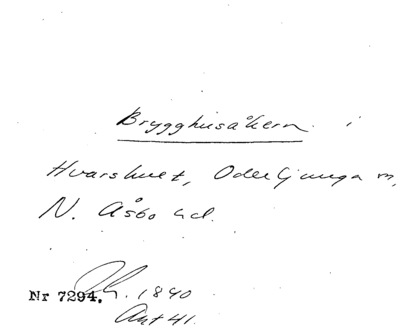 Brygghusåkern i
Hvarshult, Oderljunga sn,
N. Åsbo hd.
Nr 7294. 1840
Akt 41.